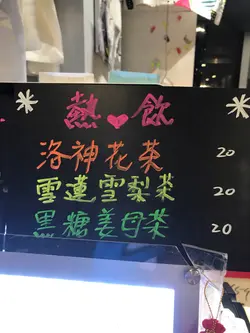 熱❤飲
洛神花茶 20
雪蓮雪梨茶 20
黑糖姜母茶 20